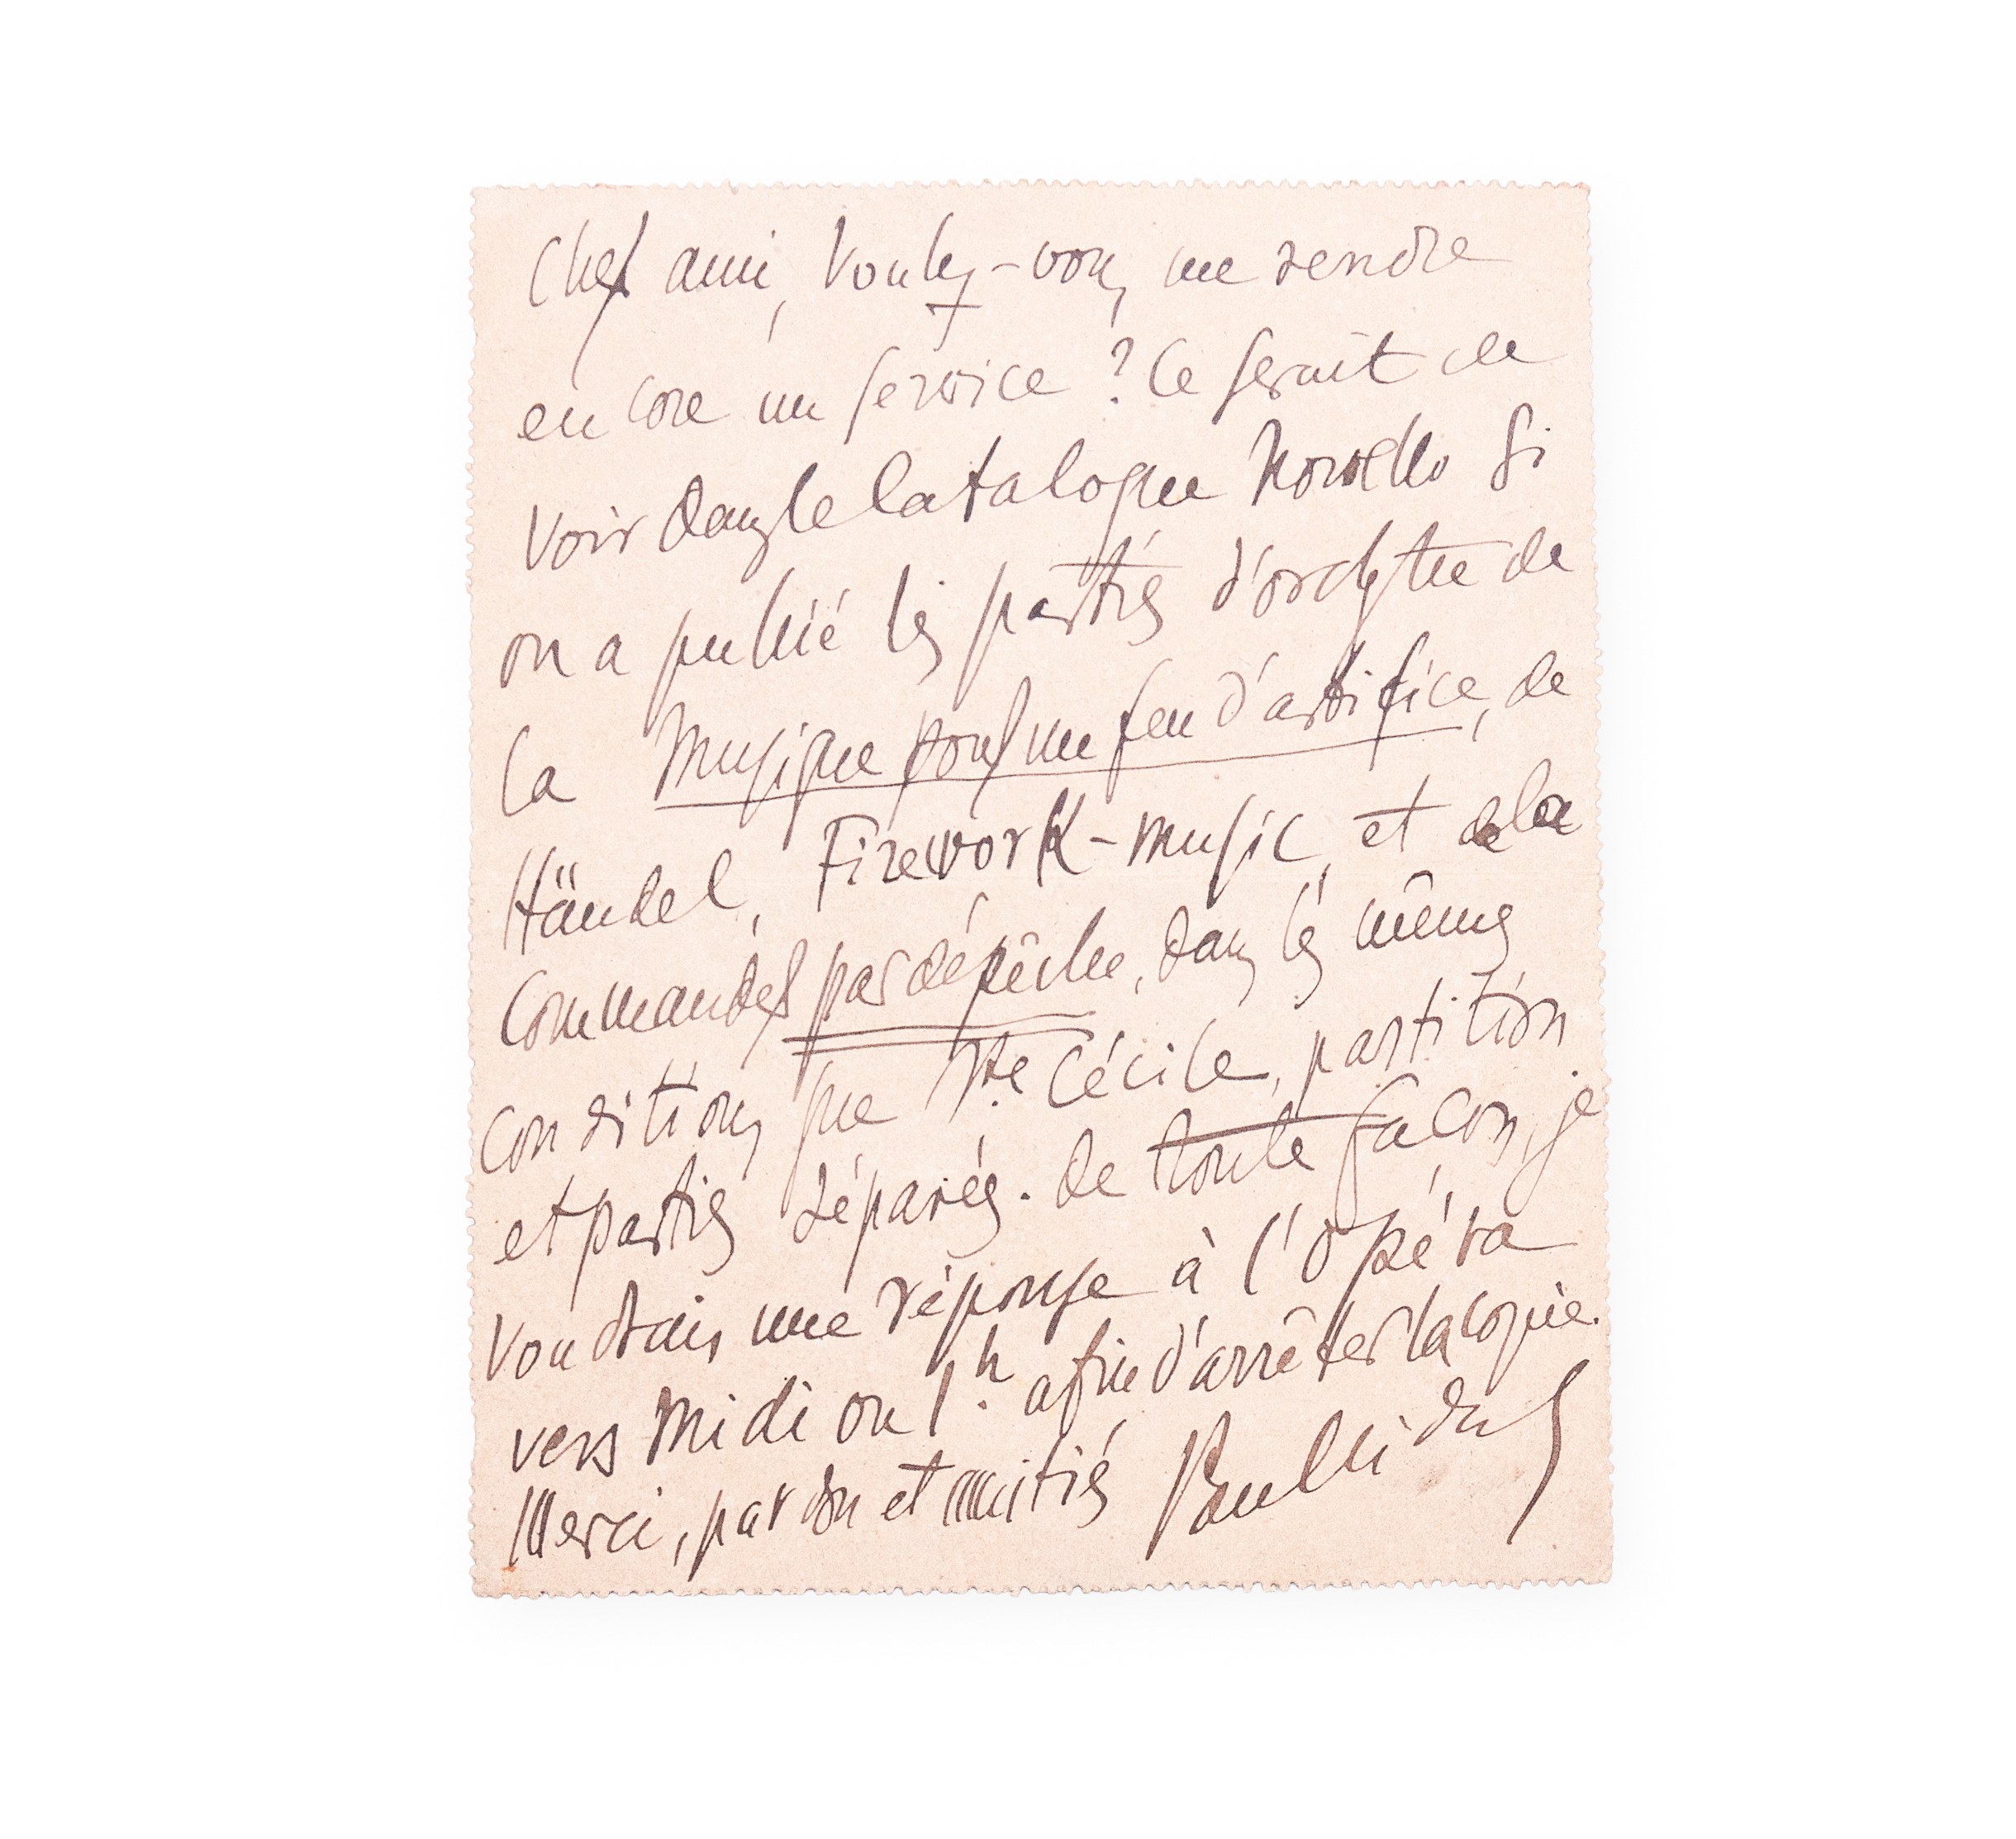 Cher ami, Voulez-vous me rendre
encore un service ? Ce serait de
voir dans le Catalogue Novello si
on a publié les parties d'orchestre de
la Musique pour un feu d'artifice, de
Händel, Firework-music, et de la
commander par dépêche, dans les mêmes
conditions que Ste Cécile, partition
et parties séparées. de toute façon, je
voudrais une réponse à l'Opéra
vers Midi ou 1h. afin d'arrêter la copie.
Merci, pardon et amitiés Paul Vidal